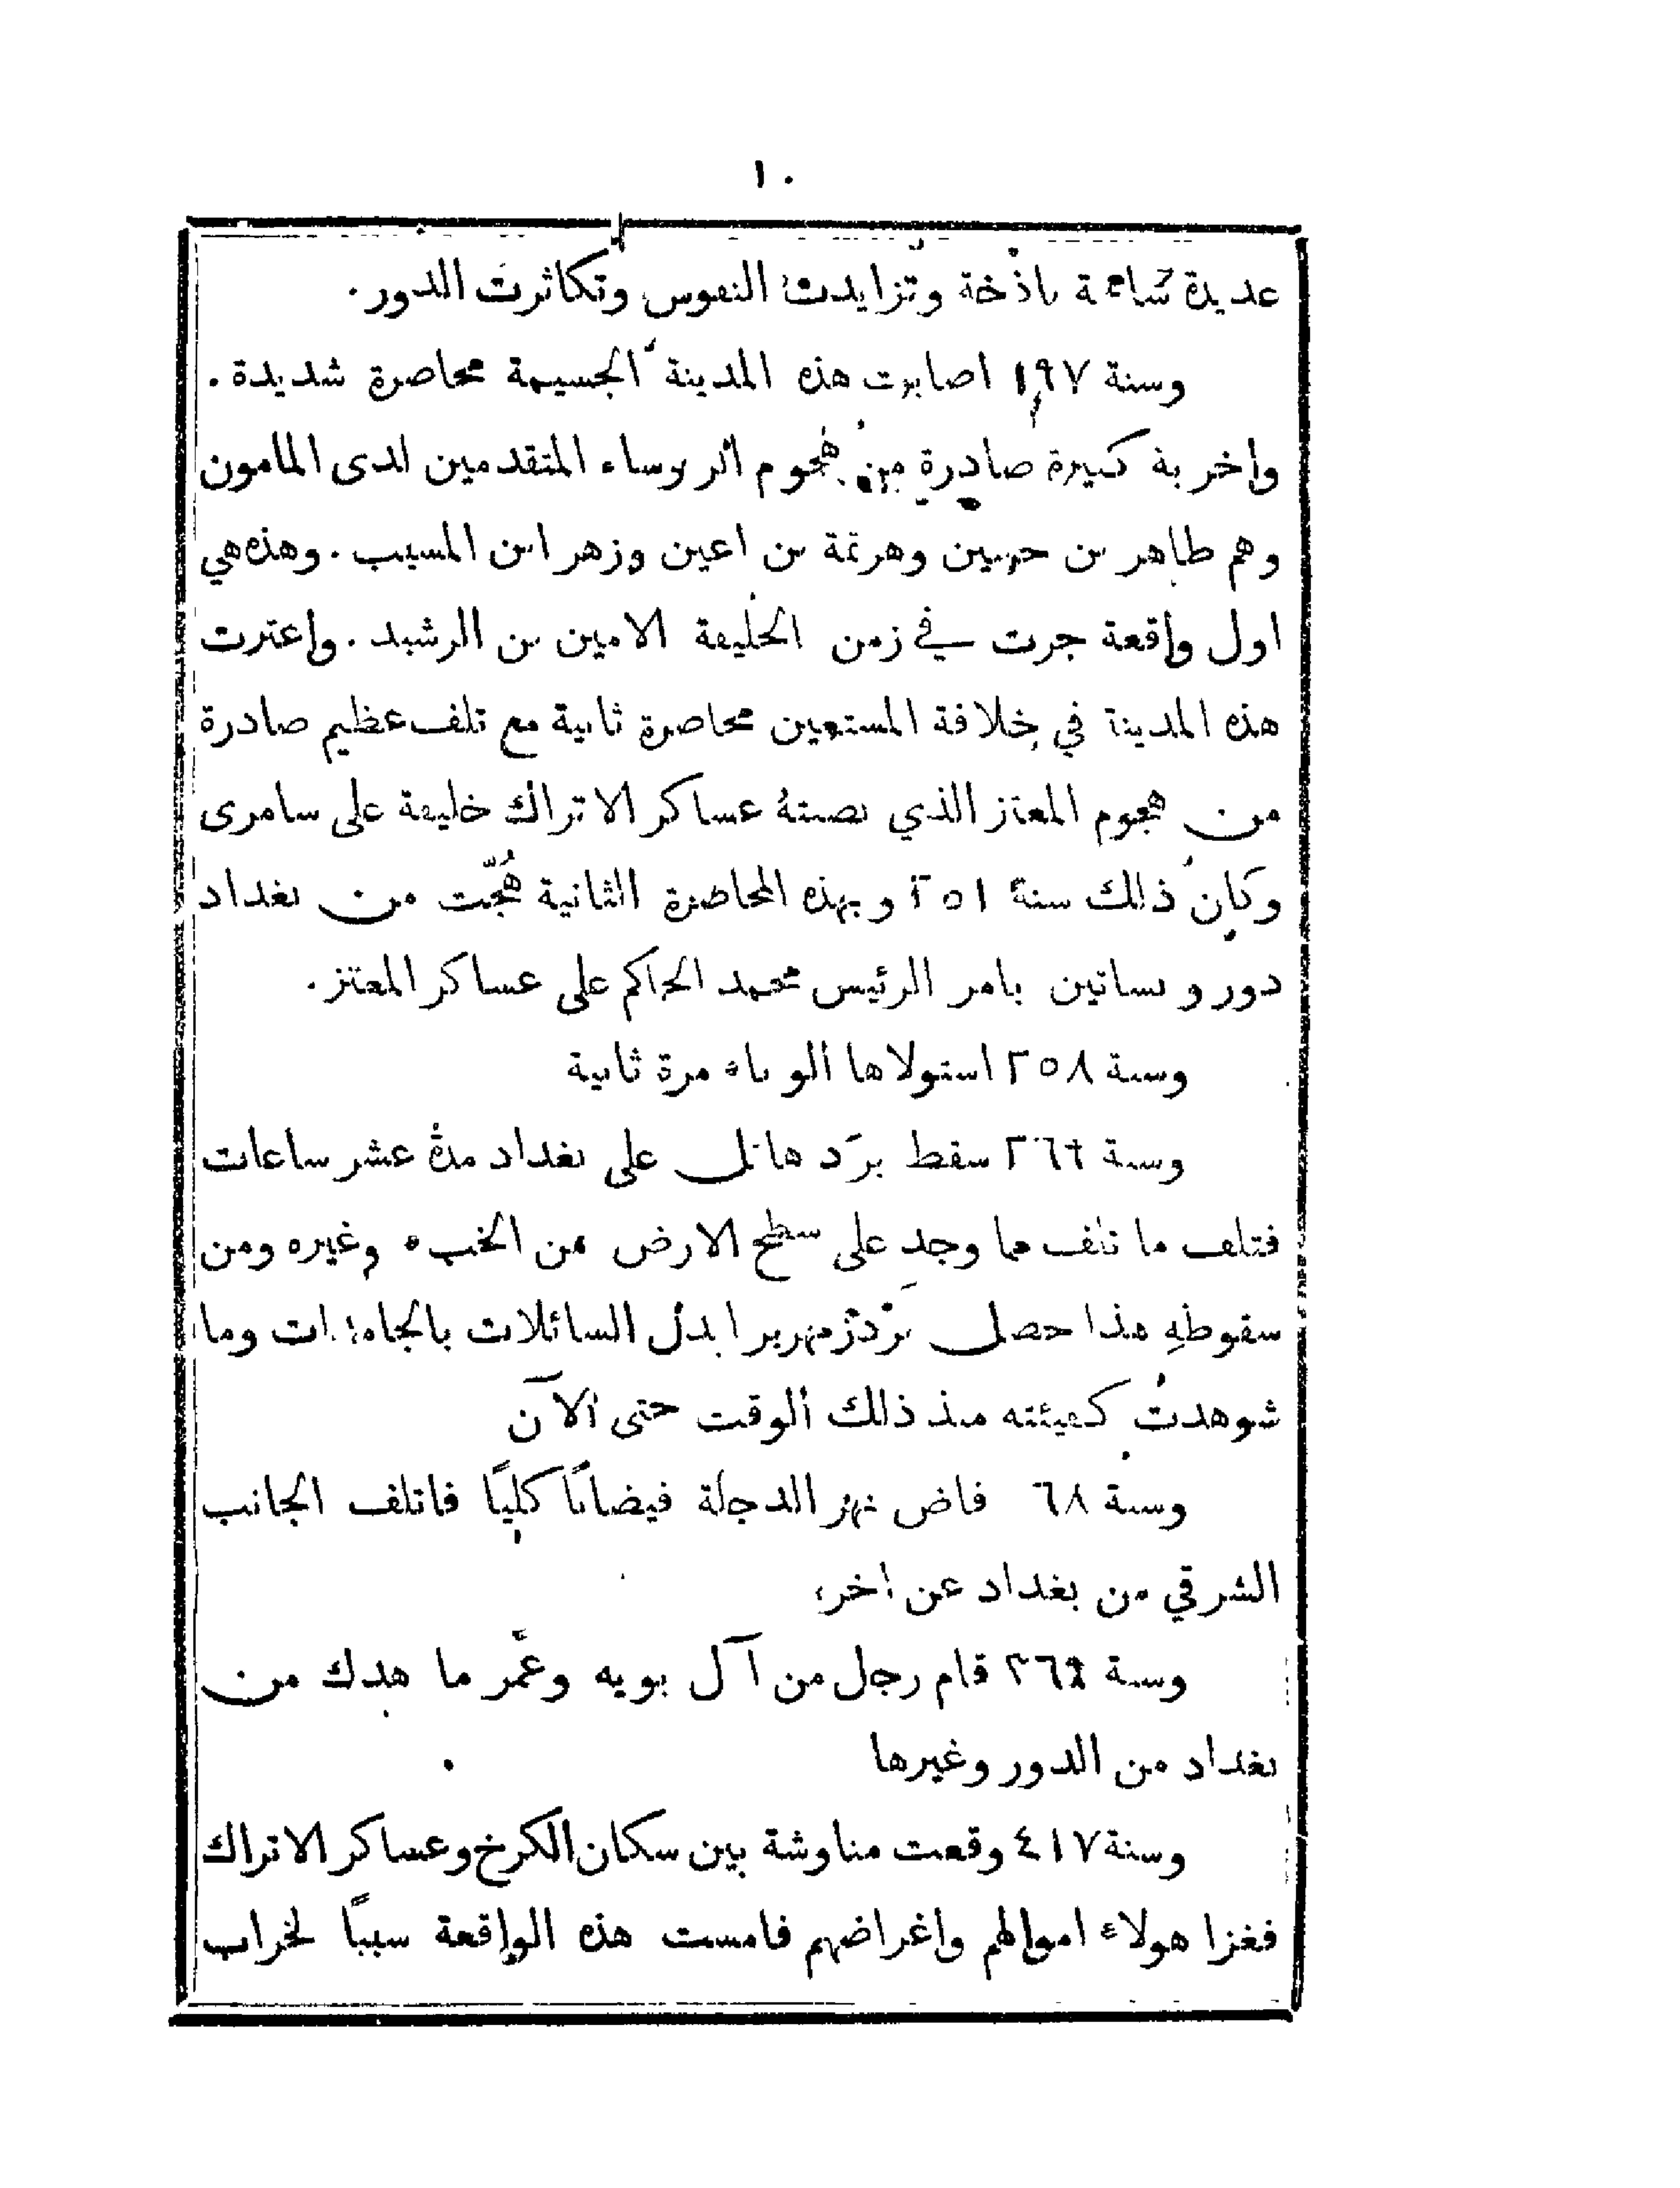 ١٠
عديدة شامخة باذخة وتزايدت النفوس وتكاثرت الدور.
وسنة ١٩٧ اصابت هذه المدينة الجسيمة محاصرة شديدة.
واخربة كبيرة صادرة من هجوم الروساء المتقدمين لدى المامون
وهم طاهر بن حسين وهرثمة بن اعين وزهر ابن المسيب. وهذه هي
اول واقعة جرت في زمن الخليفة الامين بن الرشيد. واعترت
هذه المدينة في خلافة المستعين محاصرة ثانية مع تلف عظيم صادرة
من هجوم المعتز الذي نصبتهُ عساكر الاتراك خليفة على سامرى
وكان ذلك سنة ٢٥١ وبهذه المحاصرة الثانية هُجّت من بغداد
دور وبساتين بامر الرئيس محمد الحاكم على عساكر المعتز.
وسنة ٢٥٨ استولاها الوباء مرة ثانية
وسنة سقط برَد هائل على بغداد مدة عشر ساعات
فتلف ما تلف مما وجد على سطح الارض من وغيره ومن
سقوطهِ هذا حصل برد زمهرير ابدل السائلات بالجامدات وما
شوهدت كهيئته منذ ذلك الوقت حتى الآن
وسنة فاض نهر الدجلة فيضانًا كليًا فاتلف الجانب
الشرقي من بغداد عن اخره
وسنة قام رجل من آل بويه وعمَّر ما هدك من
بغداد من الدور وغيرها
وسنة ٤١٧ وقعت مناوشة بين سكان الكرخ وعساكر الاتراك
فغزا هولاء اموالهم واغراضهم فامست هذه الواقعة سببًا لخراب